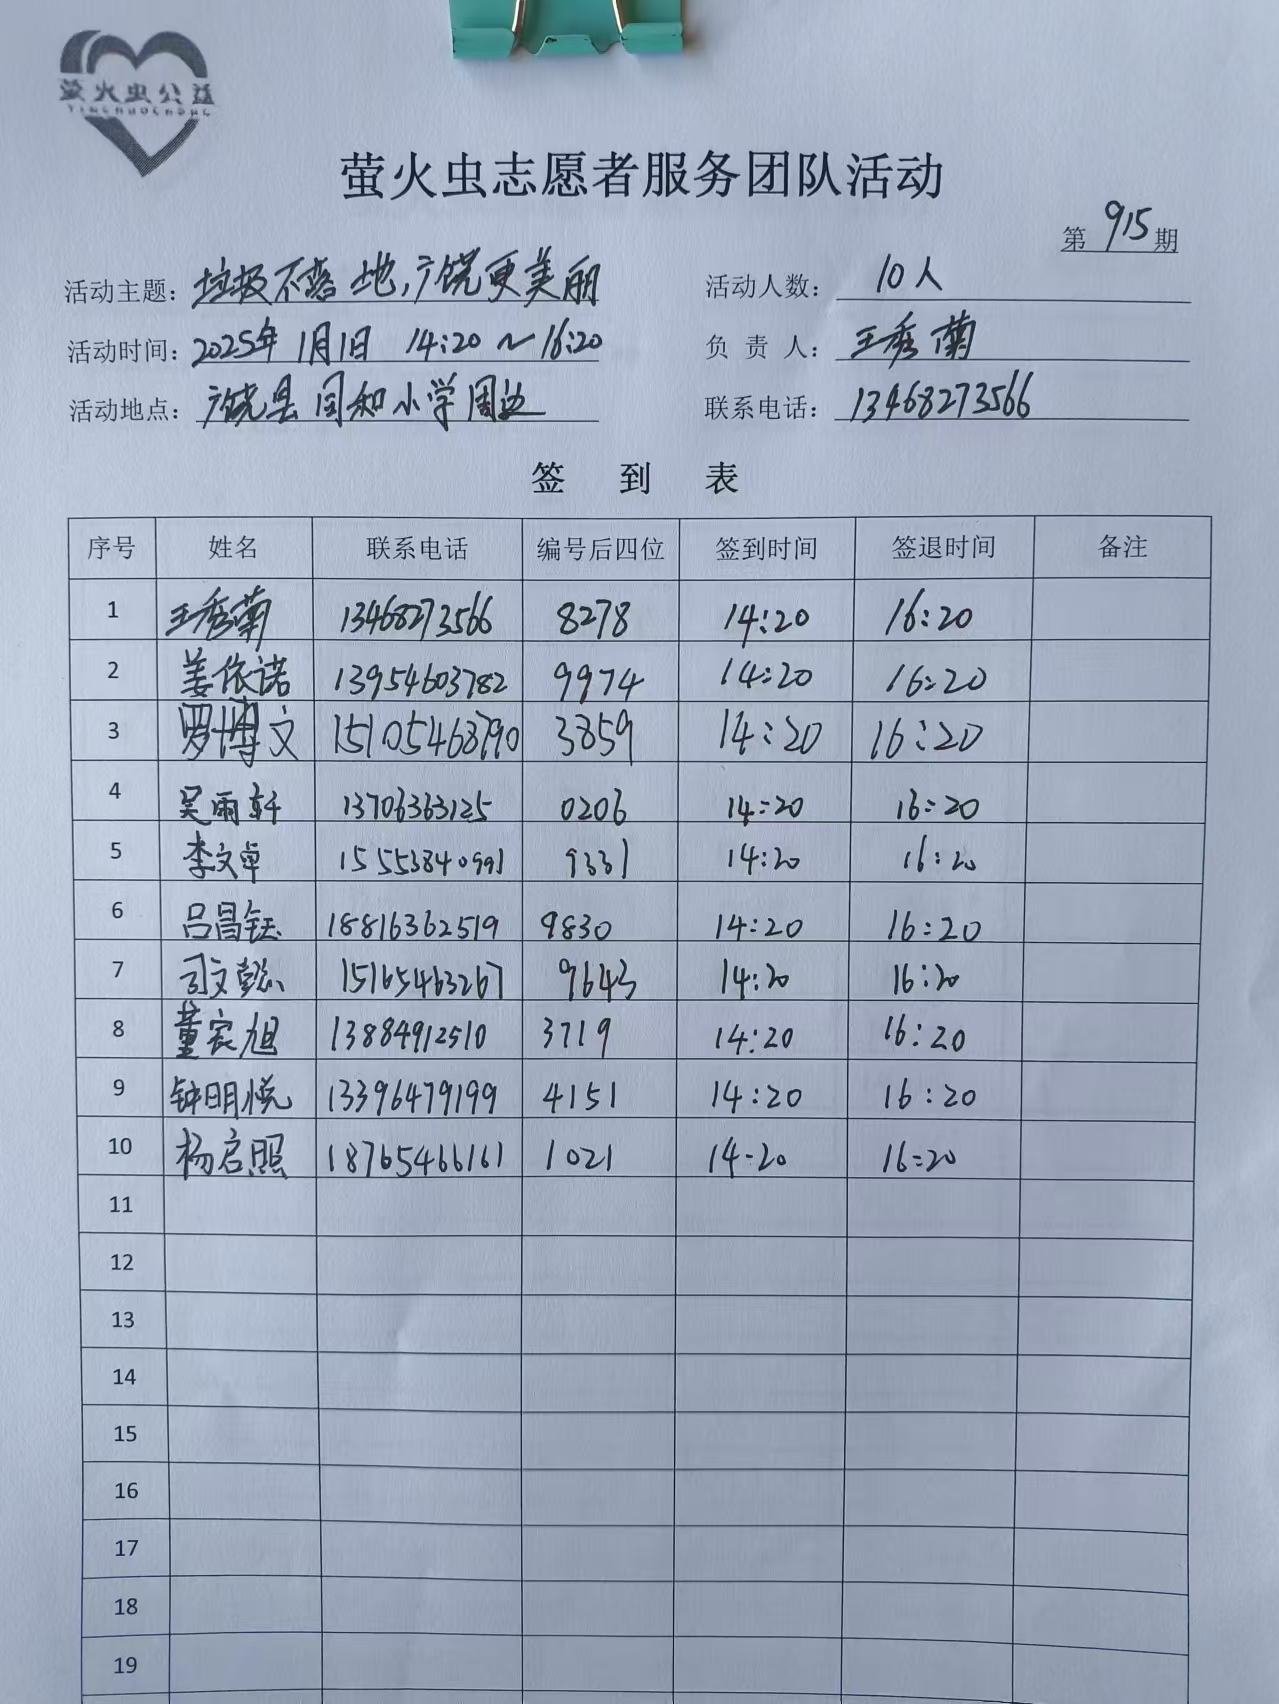 萤火虫公益
YINGHUOCHONG
萤火虫志愿者服务团队活动
第 915 期
活动主题: 垃圾不落地,广饶更美丽 活动人数: 10人
活动时间: 2025年1月1日 14:20～16:20 负责人: 王秀菊
活动地点: 广饶县同和小学周边 联系电话: 13468273566
签到表
序号 姓名 联系电话 编号后四位 签到时间 签退时间 备注
1 王秀菊 13468273566 8278 14:20 16:20
2 姜依诺 13954603782 9974 14:20 16:20
3 罗博文 15105468790 3859 14:20 16:20
4 吴雨轩 13706363125 0206 14:20 16:20
5 李文卓 15553840991 9331 14:20 16:20
6 吕昌钰 18816362519 9830 14:20 16:20
7 司文懿 15165463267 9643 14:20 16:20
8 董宸旭 13884912510 3719 14:20 16:20
9 钟明悦 13396479199 4151 14:20 16:20
10 杨启照 18765466161 1021 14-20 16:20
11
12
13
14
15
16
17
18
19